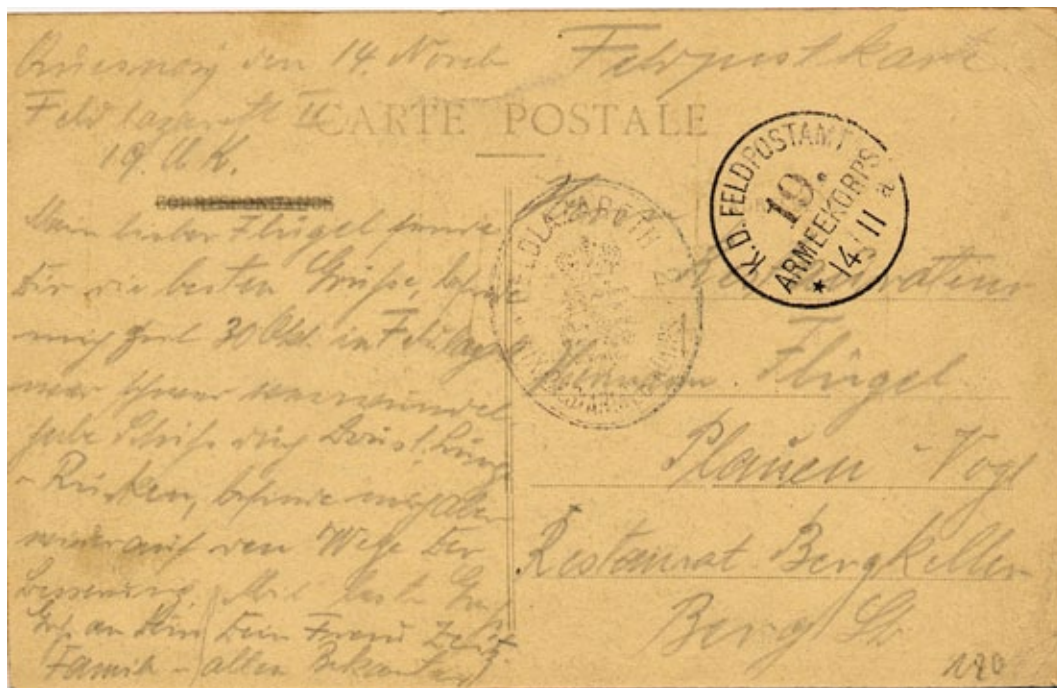 Quesnoy den 14. Noveb
Feldpostkarte
Feldlazarett II
19. A.K.
CARTE POSTALE
CORRESPONDANCE
K.D. FELDPOSTAMT
19.
ARMEEKORPS
14 11
a
FELDLAZARETH 2
Mein lieber Flügel sende
Dir die besten Grüße, befinde
mich seit 30 Okt. in Feldlaza
war schwer verwundet
habe Schuß durch Brust Lunge
- Rücken, befinde mich aber
wieder auf den Wege der
Besserung. Mit best. Gruß
Dein Freund
Famili - allen Bekannten
Herrn
Restaurateur
Hermann Flügel
Plauen - Vogl
Restaurat Bergkeller
Berg St.
120